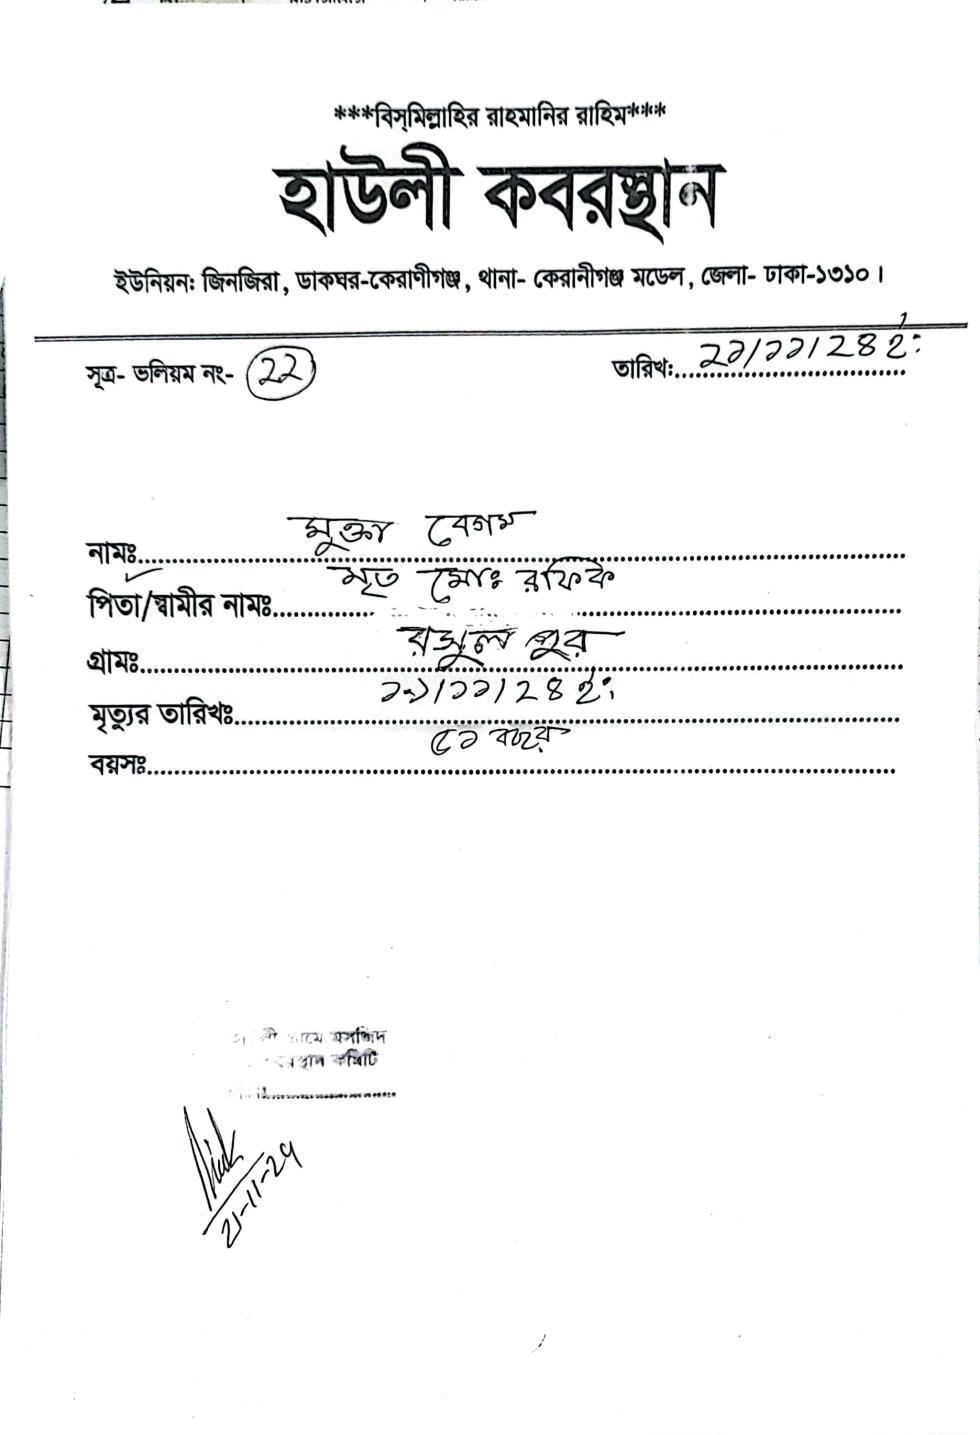 ***বিস্‌মিল্লাহির রাহমানির রাহিম***
হাউলী কবরস্থান
ইউনিয়ন: জিনজিরা, ডাকঘর-কেরাণীগঞ্জ, থানা- কেরানীগঞ্জ মডেল, জেলা- ঢাকা-১৩১০।
সূত্র- ভলিয়ম নং- ২২ তারিখ: ২১/১১/২৪ ইং
নামঃ মুক্তা বেগম
পিতা/স্বামীর নামঃ মৃত মোঃ রফিক
গ্রামঃ রসুল পুর
মৃত্যুর তারিখঃ /১১/২৪ ইং
বয়সঃ ৫১ বছর
মসজিদ
কমিটি
21-11-24